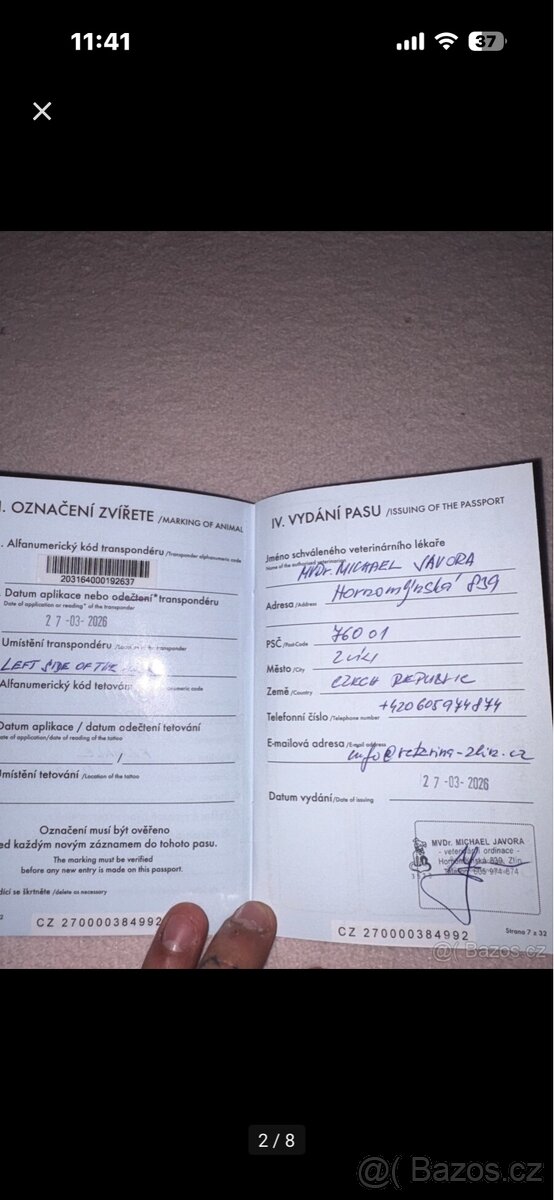 11:41
37
I. OZNAČENÍ ZVÍŘETE /MARKING OF ANIMAL
. Alfanumerický kód transpondéru /Transponder alphanumeric code
203164000192637
Datum aplikace nebo odečtení* transpondéru
Date of application or reading* of the transponder
27-03-2026
Umístění transpondéru /Location of the transponder
LEFT SIDE OF THE
Alfanumerický kód tetování
Datum aplikace / datum odečtení tetování
ate of application/date of reading of the tattoo
/
místění tetování /Location of the tattoo
Označení musí být ověřeno
ed každým novým záznamem do tohoto pasu.
The marking must be verified
before any new entry is made on this passport.
dící se škrtněte /delete as necessary
CZ 270000384992
IV. VYDÁNÍ PASU /ISSUING OF THE PASSPORT
Jméno schváleného veterinárního lékaře
Name of the authorised veterinarian
MVDr. MICHAEL JAVORA
Adresa /Address Hornomlýnská 839
PSČ /Post-Code 76001
Město /City Zlín
Země /Country CZECH REPUBLIC
Telefonní číslo /Telephone number +420605974874
E-mailová adresa /E-mail address info@veterina-zlin.cz
27-03-2026
Datum vydání /Date of issuing
MVDr. MICHAEL JAVORA
- veterinární ordinace -
Hornomlýnská 839, Zlín
Telefon: 605 974 874
CZ 270000384992
Strana 7 z 32
@( Bazos.cz
2 / 8
@( Bazos.cz